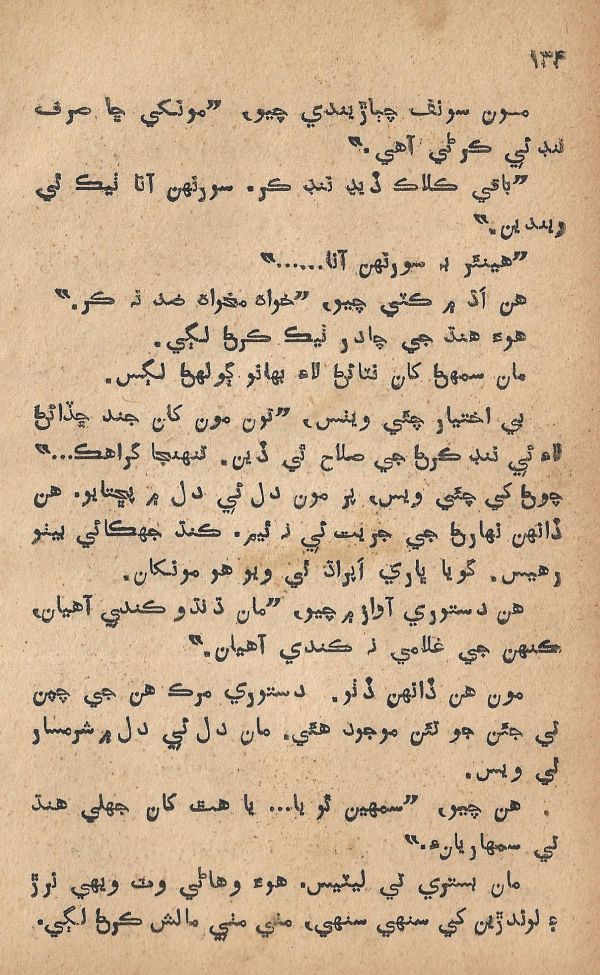 ۱۳۴
مون سونف چٻاڙيندي چيو، ”مونکي ڇا صرف
ننڊ ئي ڪرڻي آهي.“
”باقي ڪلاڪ ڏيڍ ننڊ ڪر. سورنهن آنا ٺيڪ ٿي
ويندين.“
”هينئر بہ سورنهن آنا......“
هن اَڌ ۾ ڪٽي چيو، ”خواه مخواه ضد نہ ڪر.“
هوءَ هنڌ جي چادر ٺيڪ ڪرڻ لڳي.
مان سمهڻ کان نٽائڻ لاءِ بهانو ڳولهڻ لڳس.
بي اختيار چئي ويٺس، ”تون مون کان جند ڇڏائڻ
لاءِ ئي ننڊ ڪرڻ جي صلاح ٿي ڏين. تنهنجا گراهڪ...“
چوڻ کي چئي ويس، پر مون دل ئي دل ۾ پڇتايو. هن
ڏانهن نهارڻ جي جرئت ئي نہ ٿيم. ڪنڌ جهڪائي بيٺو
رهيس. گويا ڀاري اَپراڌ ٿي ويو هو مونکان.
هن دستوري آواز ۾ چيو، ”مان ڌنڌو ڪندي آهيان،
ڪنهن جي غلامي نہ ڪندي آهيان.“
مون هن ڏانهن ڏٺو. دستوري مرڪ هن جي چپن
تي جئن جو تئن موجود هئي. مان دل ئي دل ۾ شرمسار
ٿي ويس.
هن چيو، ”سمهين ٿو يا... يا هٿ کان جهلي هنڌ
تي سمهاريانءِ.“
مان بستري تي ليٽيس. هوءَ وهاڻي وٽ ويهي نرڙ
۽ لوندڙين کي سنهي سنهي، مٺي مٺي مالش ڪرڻ لڳي.